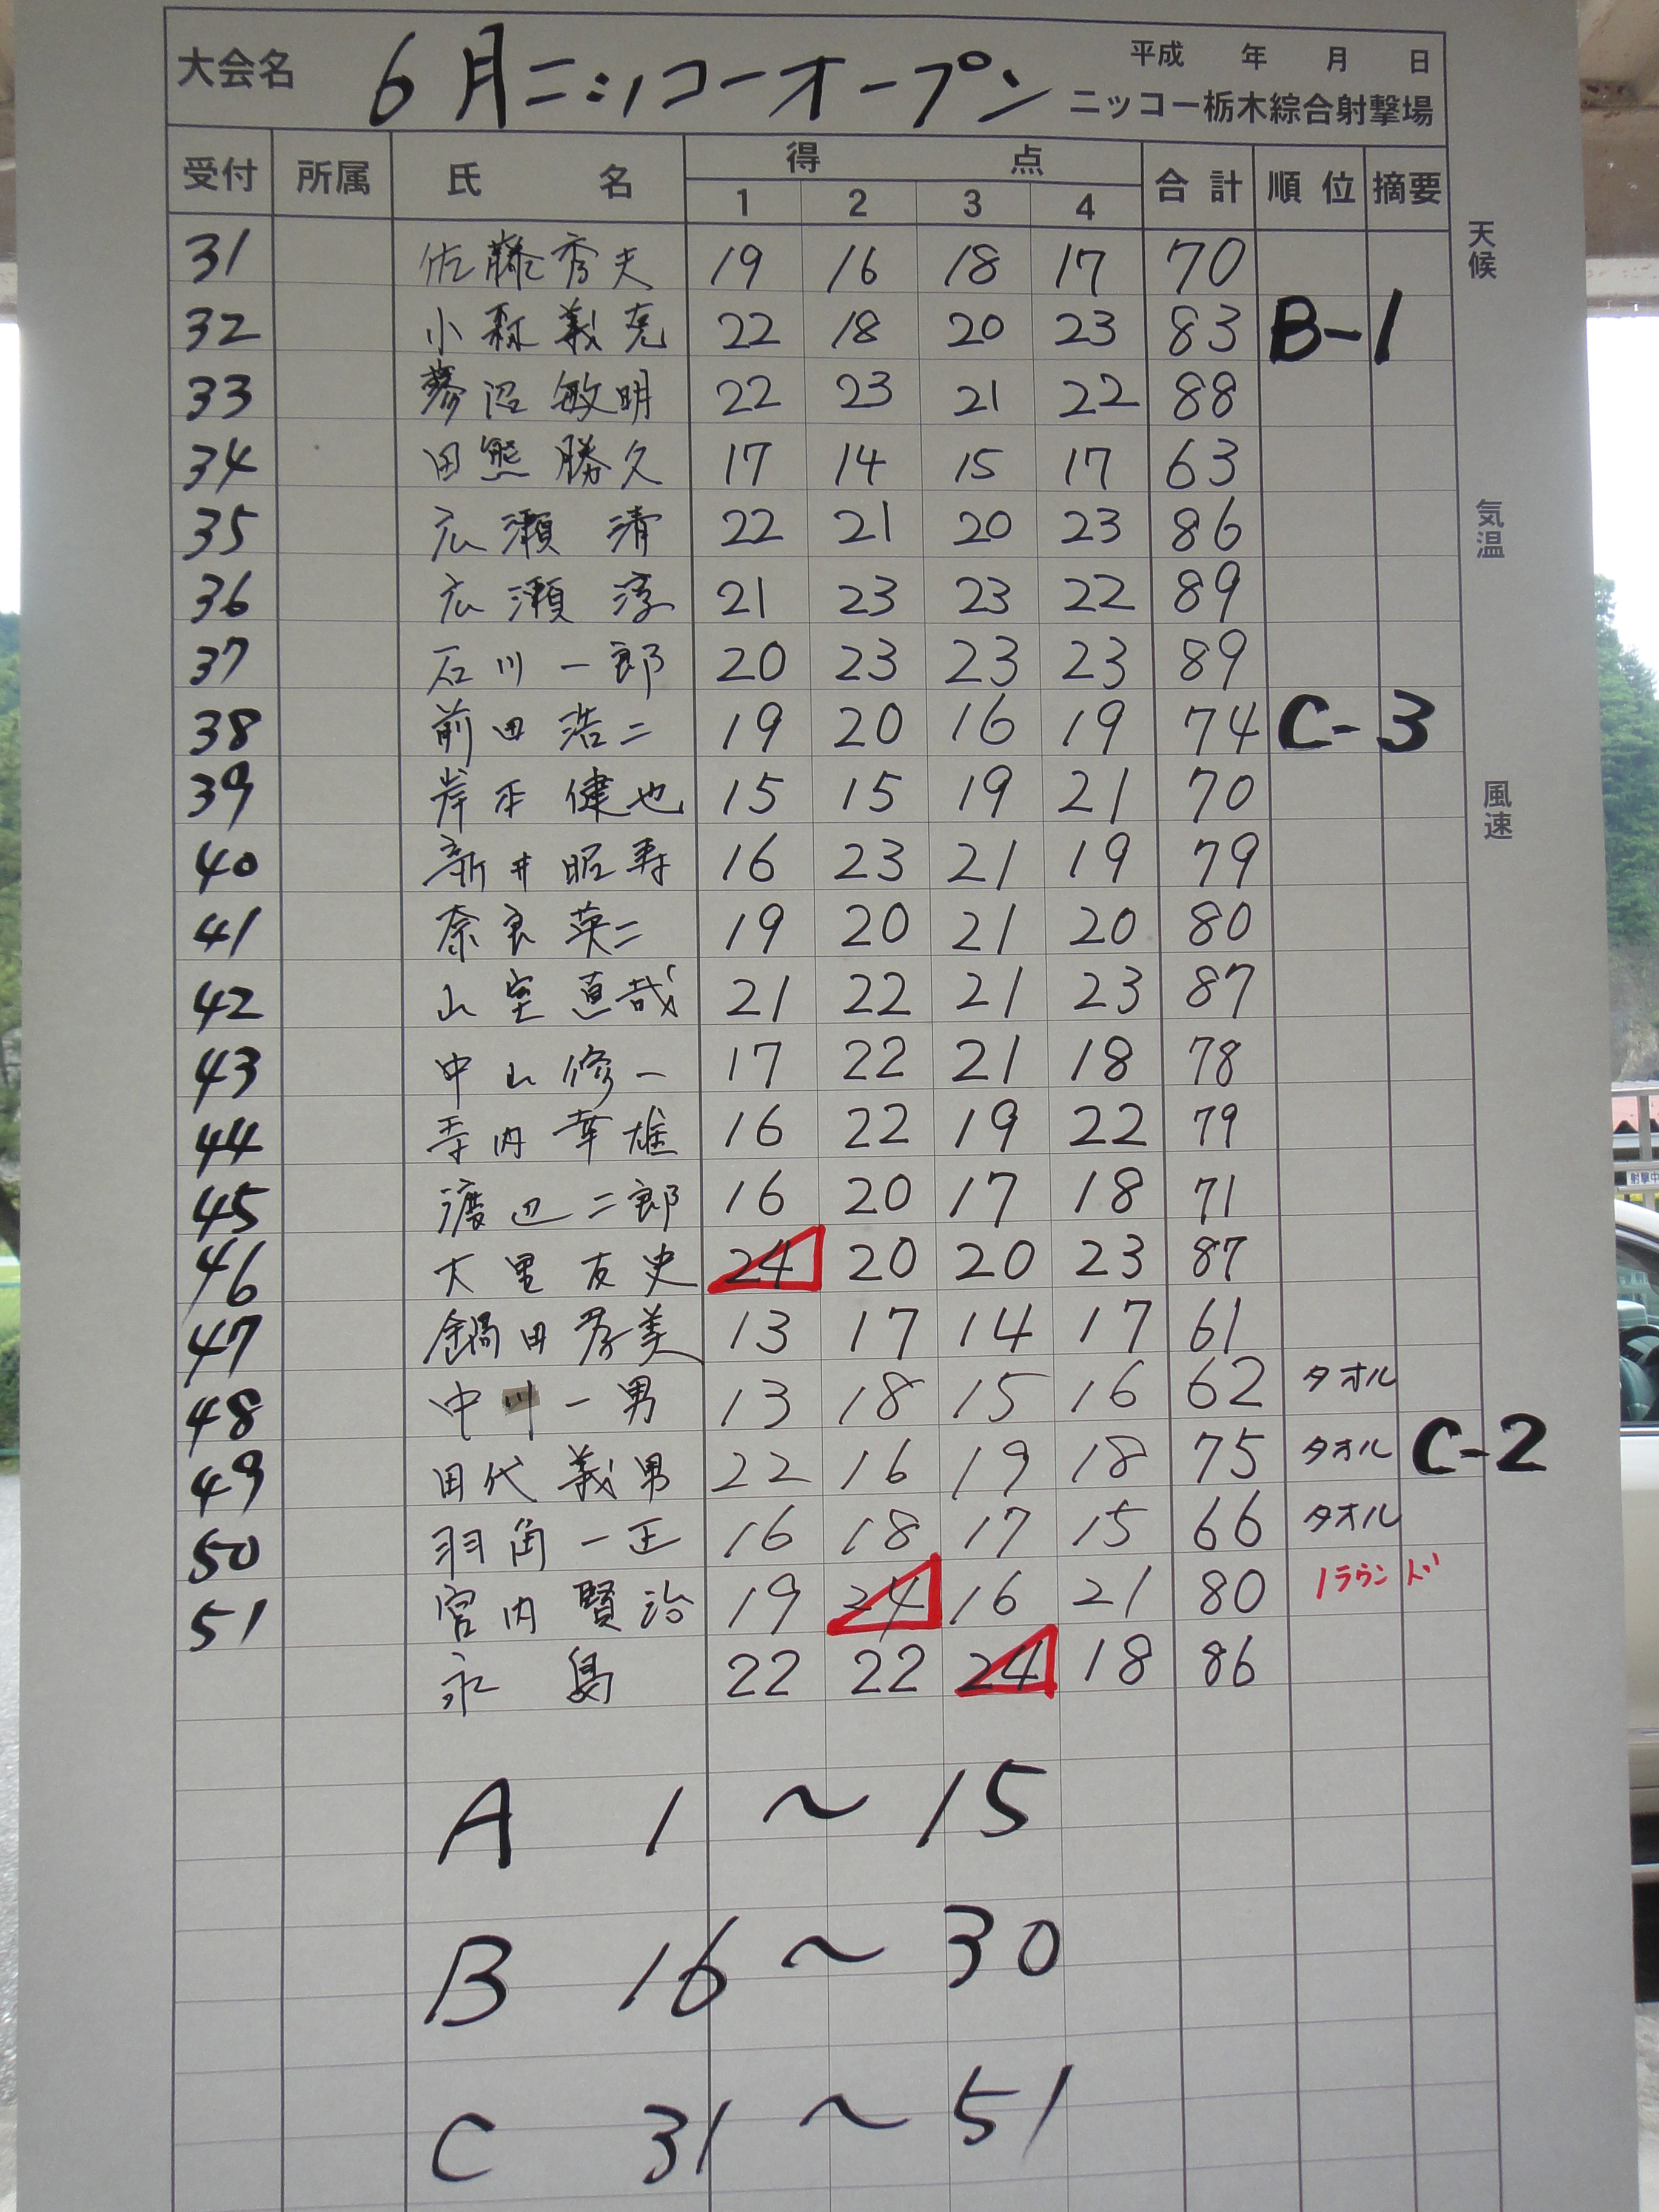 大会名 6月ニッコーオープン 平成 年 月 日
ニッコー栃木綜合射撃場
受付 所属 氏名 得点 合計 順位 摘要
1 2 3 4
天候
気温
風速
31 佐藤秀夫 19 16 18 17 70
32 小森義亮 22 18 20 23 83 B-1
33 蓼沼敏明 22 23 21 22 88
34 田熊勝久 17 14 15 17 63
35 広瀬清 22 21 20 23 86
36 広瀬淳 21 23 23 22 89
37 石川一郎 20 23 23 23 89
38 前田浩二 19 20 16 19 74 C-3
39 岸本健也 15 15 19 21 70
40 新井昭寿 16 23 21 19 79
41 奈良英二 19 20 21 20 80
42 山室直哉 21 22 21 23 87
43 中山修一 17 22 21 18 78
44 寺内幸雄 16 22 19 22 79
45 渡辺二郎 16 20 17 18 71
46 大里友史 24 20 20 23 87
47 鍋田孝美 13 17 14 17 61
48 中川一男 13 18 15 16 62 タオル
49 田代義男 22 16 19 18 75 タオル C-2
50 羽角一正 16 18 17 15 66 タオル
51 宮内賢治 19 24 16 21 80 1ラウンド
永島 22 22 24 18 86
A 1～15
B 16～30
C 31～51
射撃中